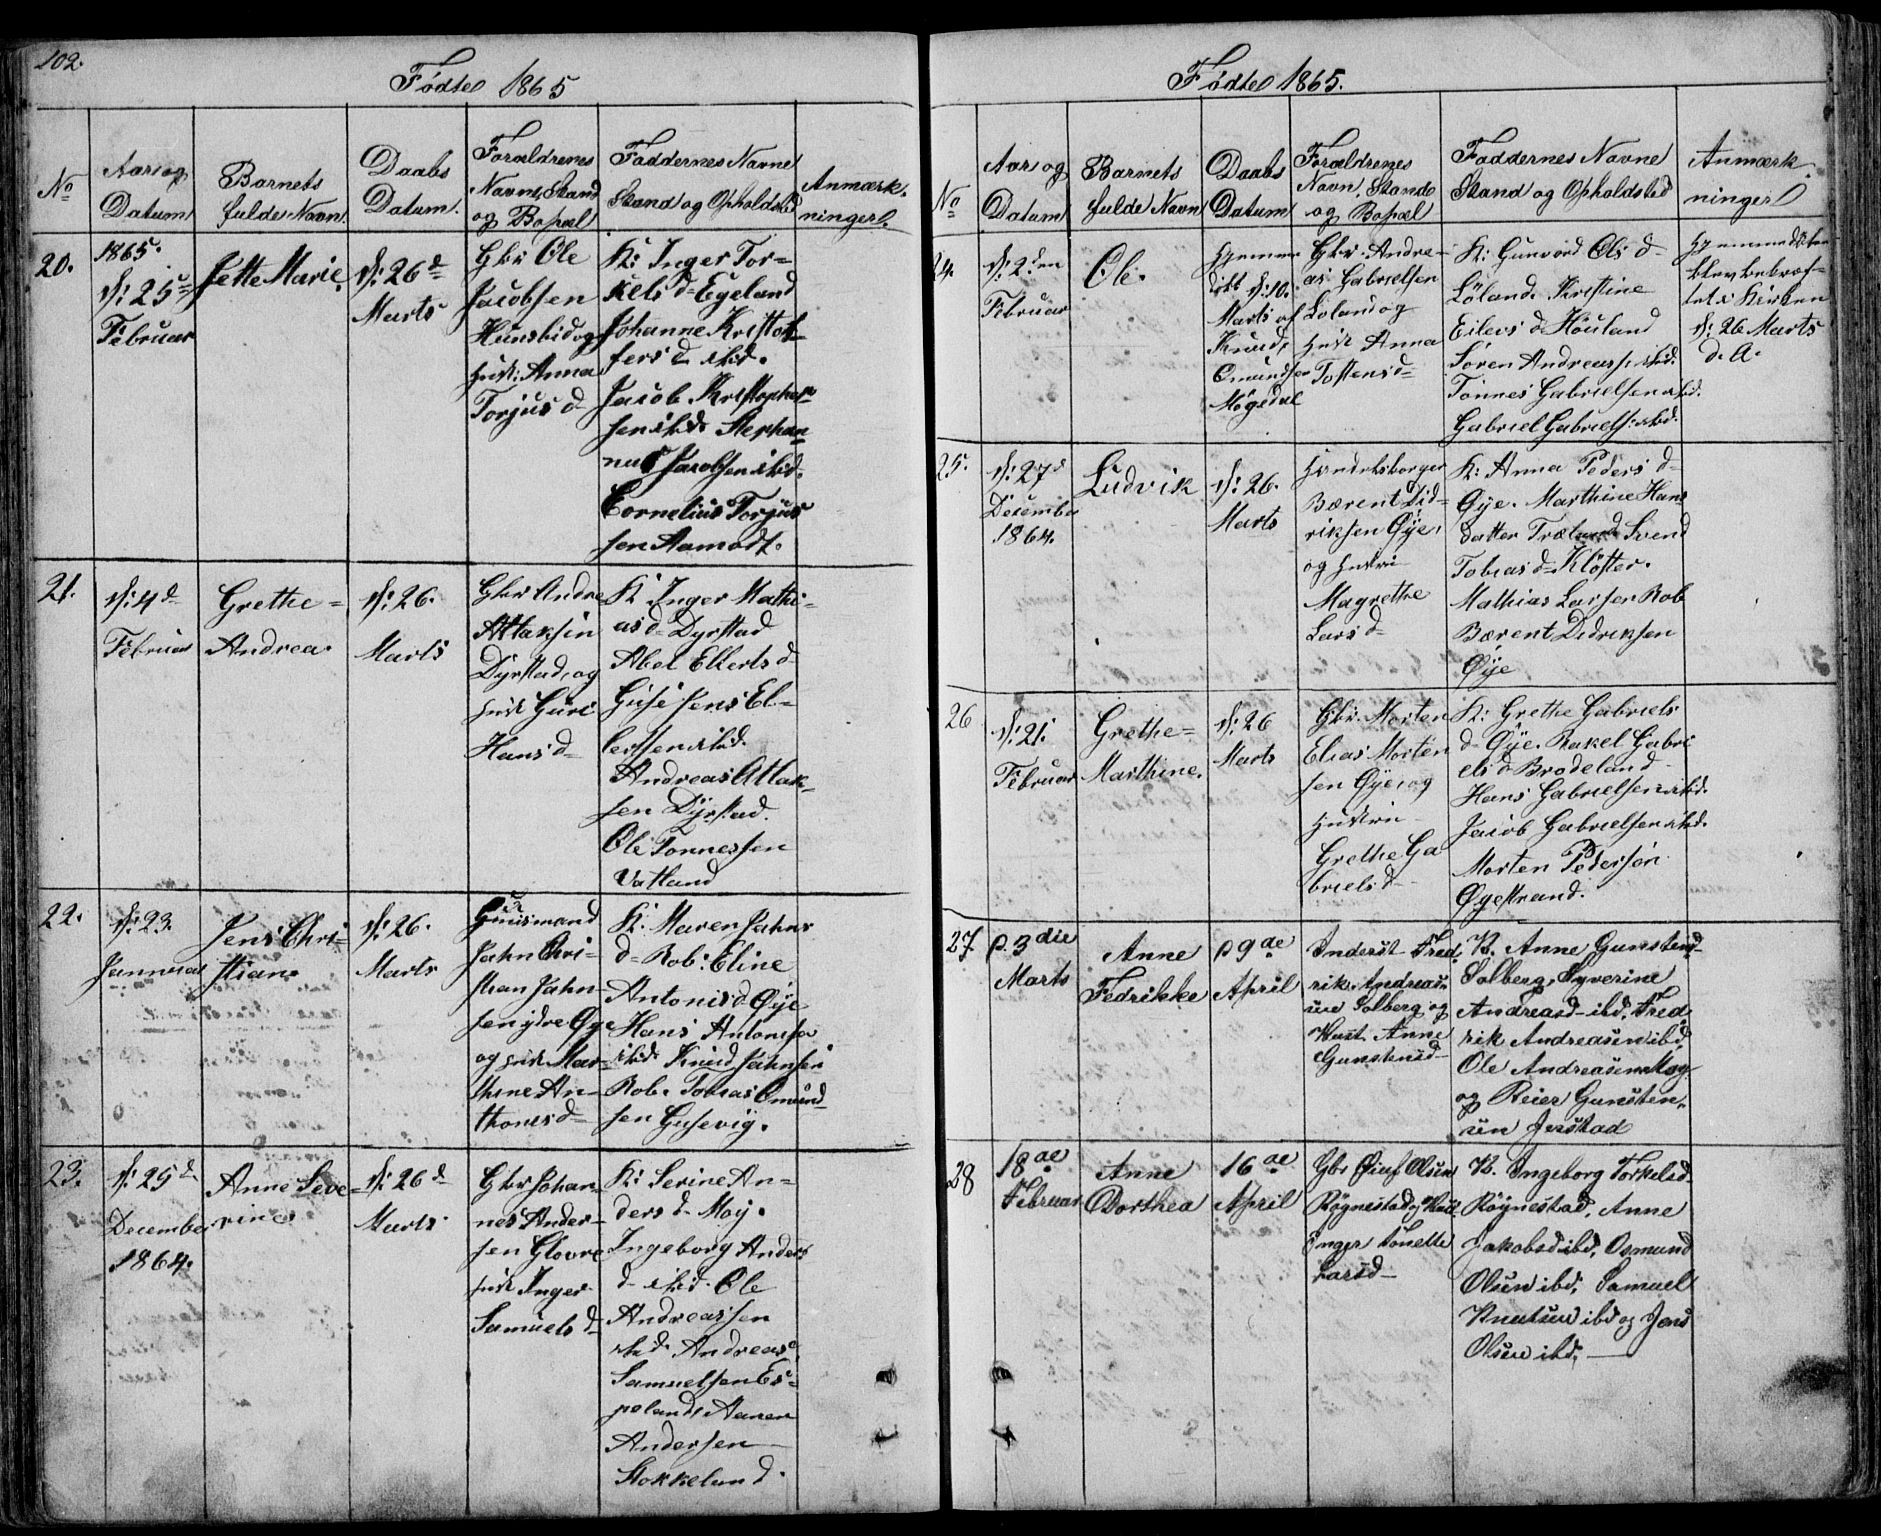 102.
Fødte 1865
No
Aar og
Datum
Barnets
fulde Navn
Daabs
Datum.
Forældrenes
Navn, Stand
og Bopæl
Faddernes Navne
Stand og Opholdsted
Anmærk-
ninger.
20.
1865.
d: 25
Februar
Jette Marie.
d: 26d
Marts
Gbr Ole
Jacobsen
Hunsbid og
Hust: Anna
Torjus d
K: Inger Tor-
kels d Egeland
Johanne Kristof-
fers d ibid.
Jacob Kristopher-
sen ibid. Stephan-
nus Jacobsen ibid.
Cornelius Torjus
sen Aamodt.
21.
d: 4d
Februar
Grethe =
Andrea.
d: 26.
Marts
Gbr Andre
Attaksen
Dyrstad, og
Hust Guri
Hans d
K. Inger Mathi-
as d Dyrstad
Abel Ellerts d
Jens El-
lertsen ibid.
Andreas Attak-
sen Dyrstad.
Ole Tonnessen
Vatland
22.
d: 23.
Januar
Jens Chri-
stian.
d: 26.
Marts
Huusmand
Jahn Chri-
stian Jahn-
sen ydre Øye
og Hust Mar-
thine An-
thonis d
K. Maren Jahns
d Rob: Eline
Antonis d Øye
Hans Antonisen
ibid. Knud Jahnsen
Rob. Tobias Omund-
sen Gusevig.
23.
d: 25d
December
1864.
Anne Seve-
rine
d: 26d
Marts
Gbr Johan-
nes Ander-
sen Glovre
Hust Inger
Samuels d
K: Serine An-
ders d Moj.
Ingeborg Anders
d ibid. Ole
Andreassen
ibid. Andreas
Samuelsen Es-
peland, Aanen
Andersen
Stokkeland.
Fødte 1865.
No
Aar og
Datum
Barnets
fulde Navn
Daabs
Datum
Forældrenes
Navn, Stand
og Bopæl
Faddernes Navne
Stand og Opholdsted
Anmærk-
ninger
24.
d: 2den
Februar
Ole.
Hjemme
døbt d: 10.
Marts af
Knud
Omundsen
Møgedal
Gbr. Andre-
as Gabrielsen
Loland og
Hust Anna
Tostens d
K: Gunvord Ols d
Löland. Kristine
Eilevs d Houland
Sören Andreass: ibid.
Tonnes Gabrielsen ibid.
Gabriel Gabriels: ibid.
Hjemmedåben
blev bekræf-
tet i Kirken
d: 26 Marts
d. A.
25.
d: 27d
December
1864.
Ludvik
d: 26.
Marts
Handelsborger
Bærent Did-
riksen Øye,
og Hustru
Magrethe
Lars d
K: Anna Peders d
Øye. Marthine Hans
datter Træland Svend
Tobias d Klöster.
Mathias Larsen Rob
Bærent Didriksen
Øye
26
d: 21.
Februar
Grethe =
Marthine.
d: 26
Marts
Gbr. Morten
Elias Morten
sen Øye, og
Hustru
Grethe Ga
briels d
K: Grethe Gabriels
d Øye. Rakel Gabri
els d Brådeland
Hans Gabrielsen ibid.
Jacob Gabrielsen ibid.
Morten Pedersen
Øyestrand.
27
d. 3die
Marts
Anne
Fedrikke
d 9de
April
Inderst Fred-
rik Andreas-
sen Solberg og
Hust. Anne
Gunstensd
K. Anne Gunstend
Solberg, Syverine
Andreasd ibd, Fred
rik Andreasen ibd,
Ole Andreasen Moy
og Reier Gunsten-
sen Jerstad
28
18de
Februar
Anne
Dorthea
16de
April
Gbr Oluf Olsen
Røgnestad og Hust.
Inger Tonette
Larsd
K. Ingeborg Torkelsd
Røynestad, Anne
Jakobsd ibd, Osmund
Olsen ibd, Samuel
Knutsen ibd og Jens
Olsen ibd,